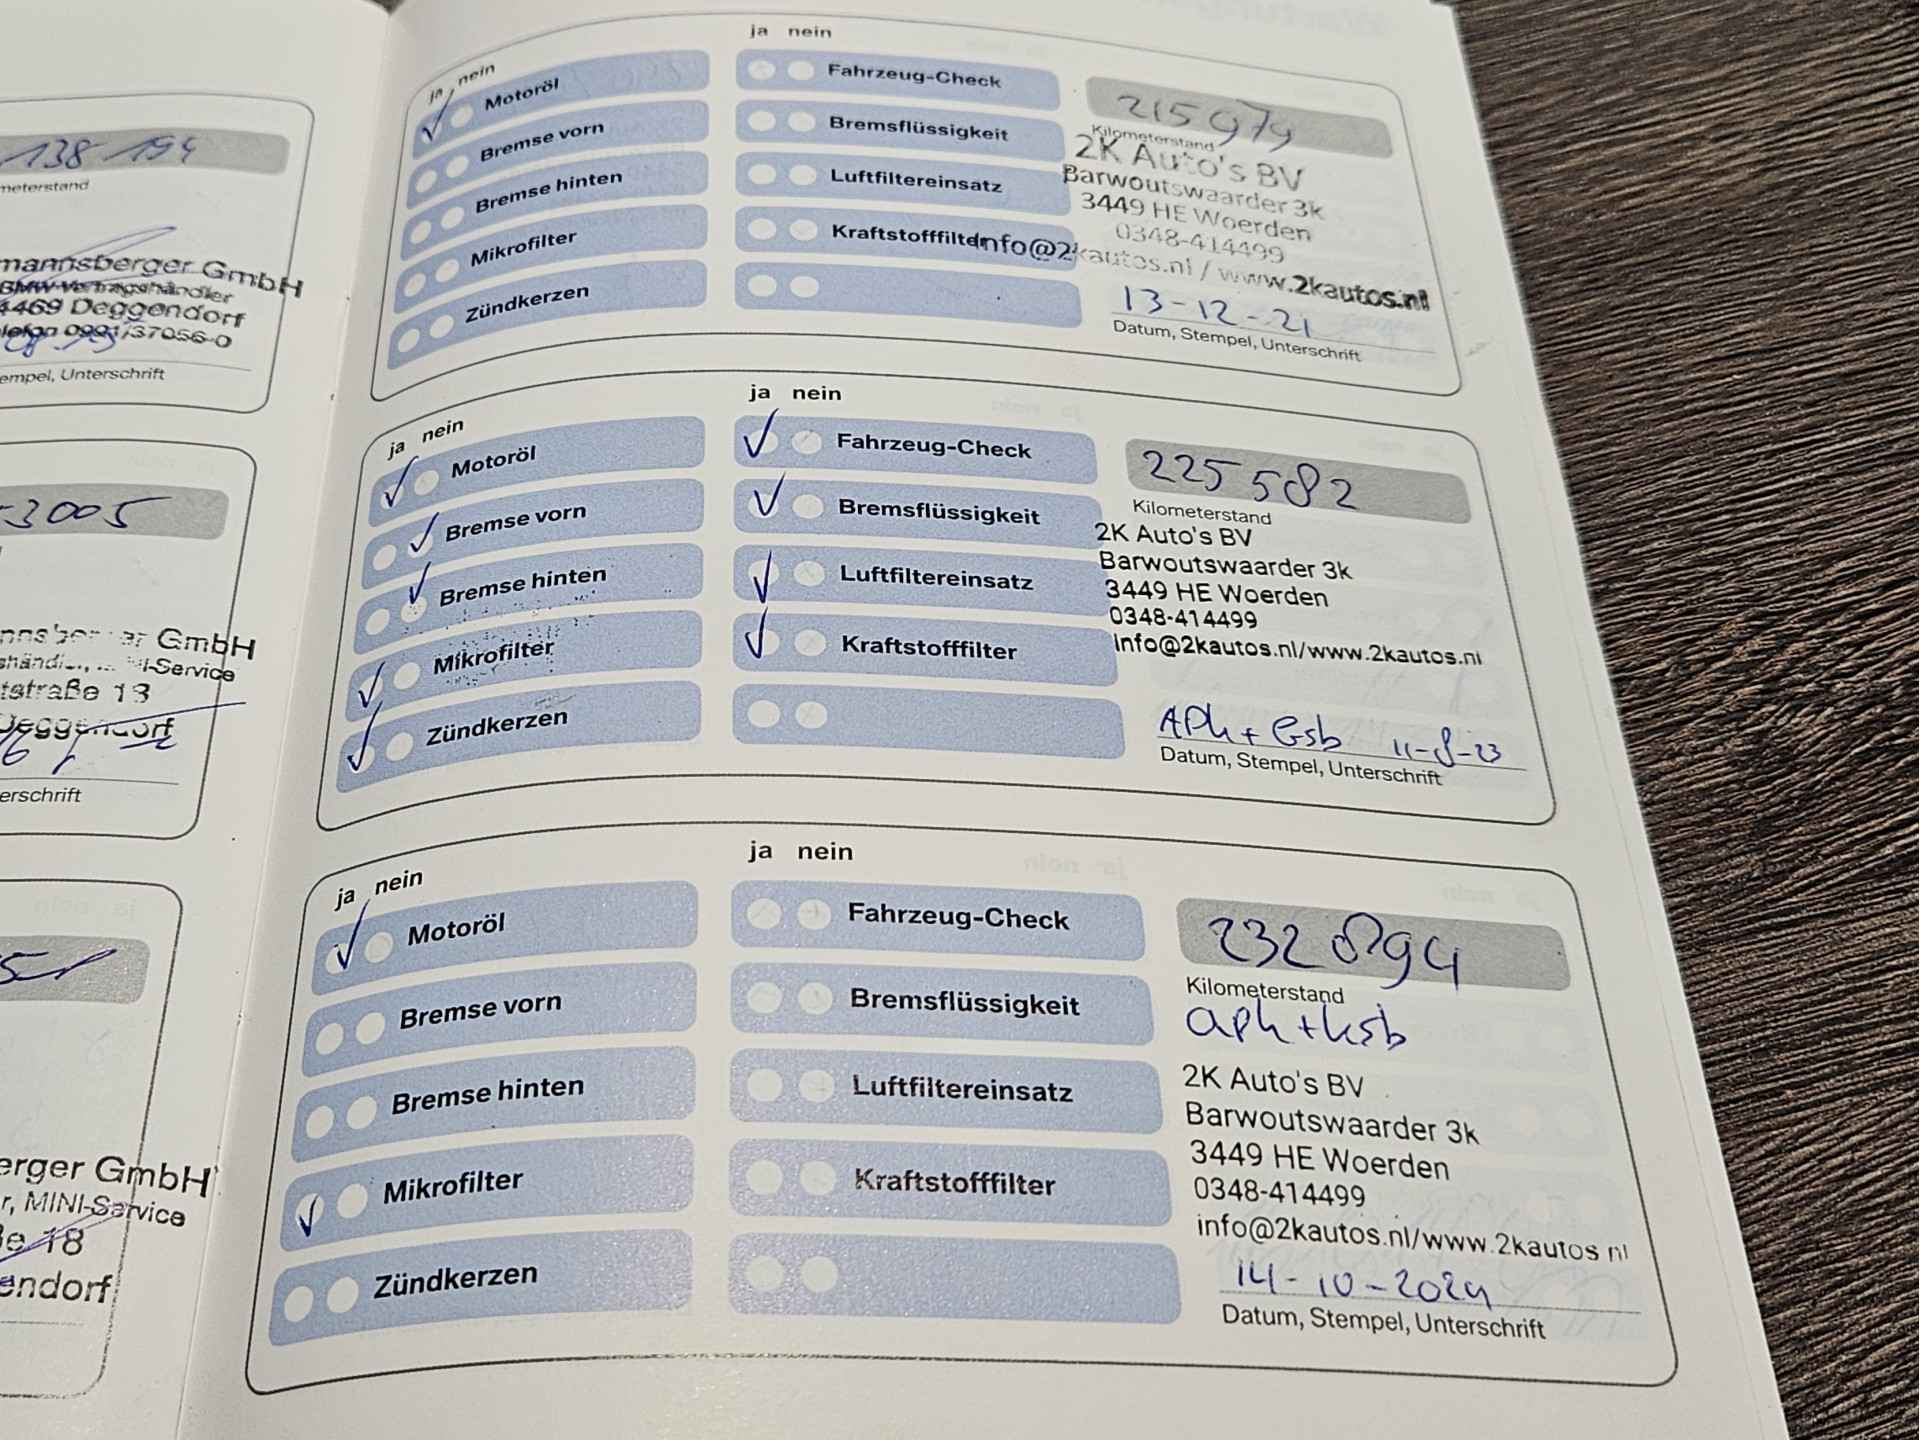 138 194
meterstand
mannsberger GmbH
BMW-Vertragshändler
4469 Deggendorf
lefon 0991/37056-0
empel, Unterschrift
3005
GmbH
shändl
I-Service
tstraße 13
Deggendorf
erschrift
erger GmbH
r, MINI-Service
ße 18
endorf
ja nein
Motoröl
Bremse vorn
Bremse hinten
Mikrofilter
Zündkerzen
ja nein
Fahrzeug-Check
Bremsflüssigkeit
Luftfiltereinsatz
Kraftstofffilter
215979
Kilometerstand
2K Auto's BV
Barwoutswaarder 3k
3449 HE Woerden
0348-414499
info@2kautos.nl / www.2kautos.nl
13-12-21
Datum, Stempel, Unterschrift
ja nein
Motoröl
Bremse vorn
Bremse hinten
Mikrofilter
Zündkerzen
ja nein
Fahrzeug-Check
Bremsflüssigkeit
Luftfiltereinsatz
Kraftstofffilter
225 582
Kilometerstand
2K Auto's BV
Barwoutswaarder 3k
3449 HE Woerden
0348-414499
info@2kautos.nl/www.2kautos.nl
11-8-23
Datum, Stempel, Unterschrift
ja nein
Motoröl
Bremse vorn
Bremse hinten
Mikrofilter
Zündkerzen
ja nein
Fahrzeug-Check
Bremsflüssigkeit
Luftfiltereinsatz
Kraftstofffilter
232 894
Kilometerstand
aph + ksb
2K Auto's BV
Barwoutswaarder 3k
3449 HE Woerden
0348-414499
info@2kautos.nl/www.2kautos nl
14-10-2024
Datum, Stempel, Unterschrift